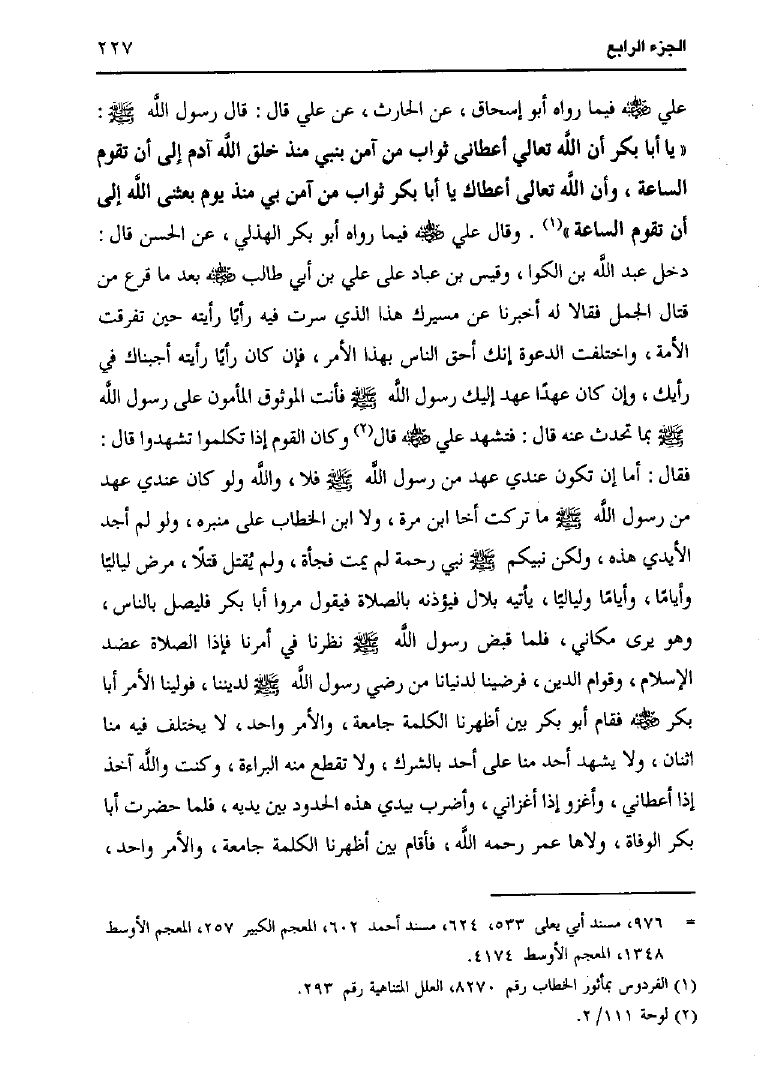 الجزء الرابع ٢٢٧
علي ﷺ فيما رواه أبو إسحاق ، عن الحارث ، عن علي قال : قال رسول الله ﷺ :
« يا أبا بكر أن الله تعالي أعطانى ثواب من آمن بنبي منذ خلق الله آدم إلى أن تقوم
الساعة ، وأن الله تعالى أعطاك يا أبا بكر ثواب من آمن بي منذ يوم بعثنى الله إلى
أن تقوم الساعة »(١) . وقال علي رضي الله عنه فيما رواه أبو بكر الهذلي ، عن الحسن قال :
دخل عبد الله بن الكوا ، وقيس بن عباد على علي بن أبي طالب رضي الله عنه بعد ما قرع من
قتال الجمل فقالا له أخبرنا عن مسيرك هذا الذي سرت فيه رأيًا رأيته حين تفرقت
الأمة ، واختلفت الدعوة إنك أحق الناس بهذا الأمر ، فإن كان رأيًا رأيته أجبناك في
رأيك ، وإن كان عهدًا عهد إليك رسول الله ﷺ فأنت الموثوق المأمون على رسول الله
ﷺ بما تحدث عنه قال : فتشهد علي رضي الله عنه قال(٢) وكان القوم إذا تكلموا تشهدوا قال :
فقال : أما إن تكون عندي عهد من رسول الله ﷺ فلا ، والله ولو كان عندي عهد
من رسول الله ﷺ ما تركت أخا ابن مرة ، ولا ابن الخطاب على منبره ، ولو لم أجد
الأيدي هذه ، ولكن نبيكم ﷺ نبي رحمة لم يمت فجأة ، ولم يُقتل قتلًا ، مرض لياليًا
وأيامًا ، وأيامًا ولياليًا ، يأتيه بلال فيؤذنه بالصلاة فيقول مروا أبا بكر فليصل بالناس ،
وهو يرى مكاني ، فلما قبض رسول الله ﷺ نظرنا في أمرنا فإذا الصلاة عضد
الإسلام ، وقوام الدين ، فرضينا لدنيانا من رضي رسول الله ﷺ لديننا ، فولينا الأمر أبا
بكر رضي الله عنه فقام أبو بكر بين أظهرنا الكلمة جامعة ، والأمر واحد ، لا يختلف فيه منا
اثنان ، ولا يشهد أحد منا على أحد بالشرك ، ولا تقطع منه البراءة ، وكنت والله آخذ
إذا أعطاني ، وأغزو إذا أغزاني ، وأضرب بيدي هذه الحدود بين يديه ، فلما حضرت أبا
بكر الوفاة ، ولاها عمر رحمه الله ، فأقام بين أظهرنا الكلمة جامعة ، والأمر واحد ،
= ٩٧٦، مسند أبي يعلى ٥٣٣، ٦٢٤، مسند أحمد ٦٠٢، المعجم الكبير ٢٥٧، المعجم الأوسط
١٣٤٨، المعجم الأوسط ٤١٧٤.
(١) الفردوس بمأثور الخطاب رقم ٨٢٧٠، العلل المتناهية رقم ٢٩٣.
(٢) لوحة ٢/١١١.